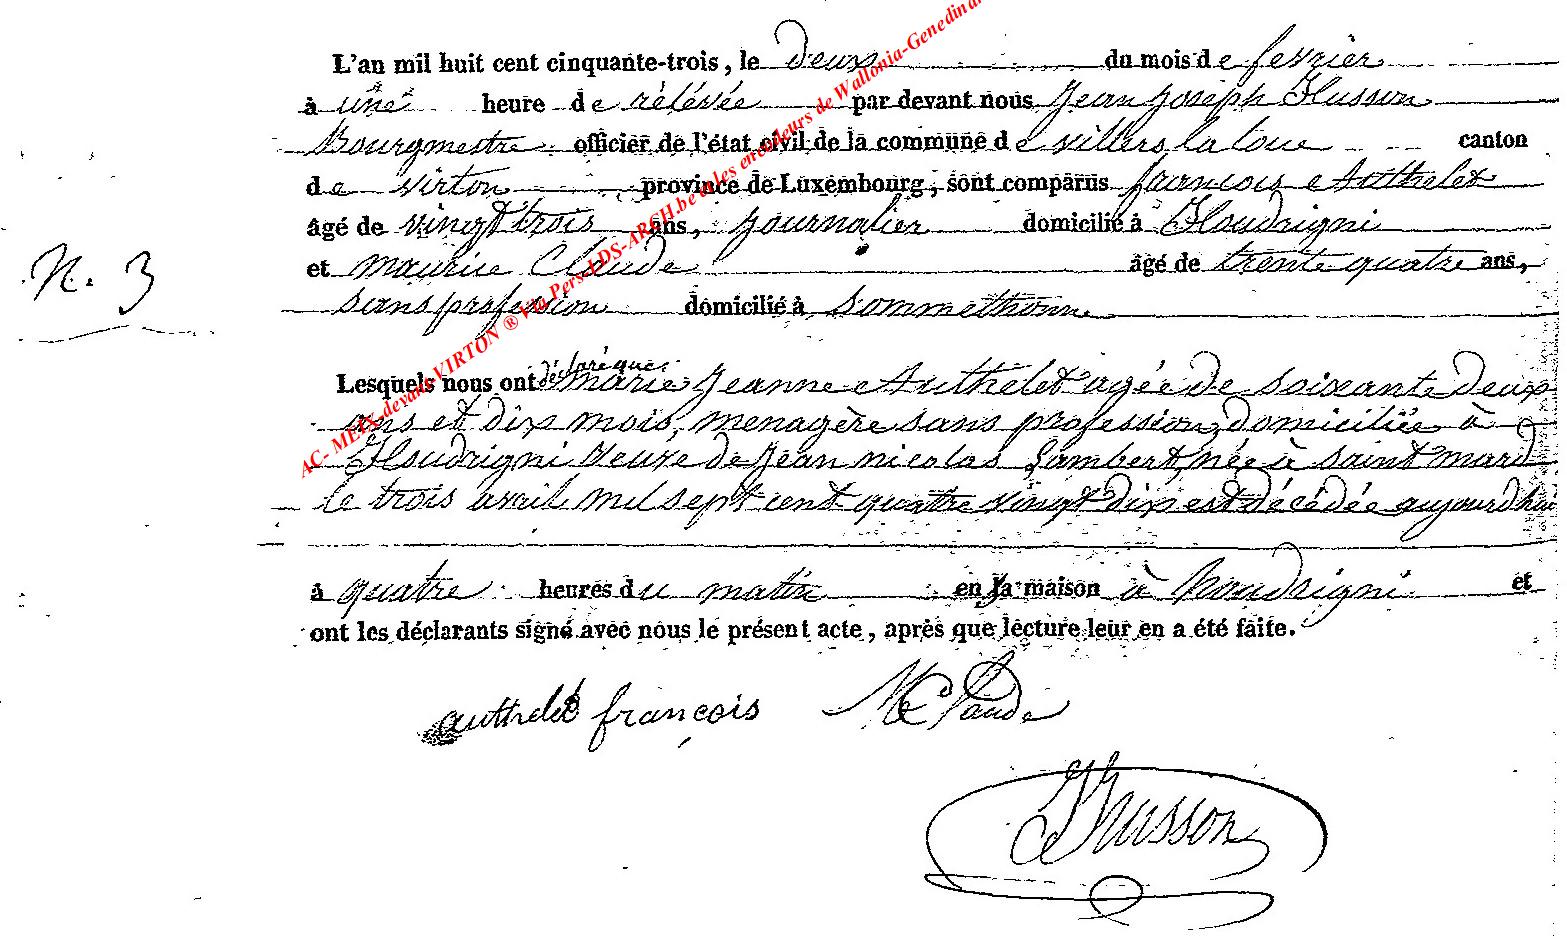 L'an mil huit cent cinquante-trois, le deux du mois de fevrier
à une heure de rélévée par devant nous Jean joseph Husson
Bourgmestre officier de l'état civil de la commune de villers la loue canton
de virton province de Luxembourg, sont comparus françois Authelet
âgé de vingt trois ans, journalier domicilié à Houdrigni
et maurice Claude âgé de trente quatre ans,
sans profession domicilié à sommethonne
N. 3
déclaré que
Lesquels nous ont marie Jeanne Authelet agée de soixante deux
ans et dix mois, menagère sans profession, domiciliée à
Houdrigni veuve de Jean nicolas Lambert, née à saint mard
le trois avril mil sept cent quatre vingt dix est décédée aujourd'hui
à quatre heures du matin en sa maison à houdrigni et
ont les déclarants signé avec nous le présent acte, après que lecture leur en a été faite.
authelet françois M Claude
JJhusson
AC- MEIX-devant-VIRTON ® Via Pers-LDS-ARCH.be et les encodeurs de Wallonia-Genedinar